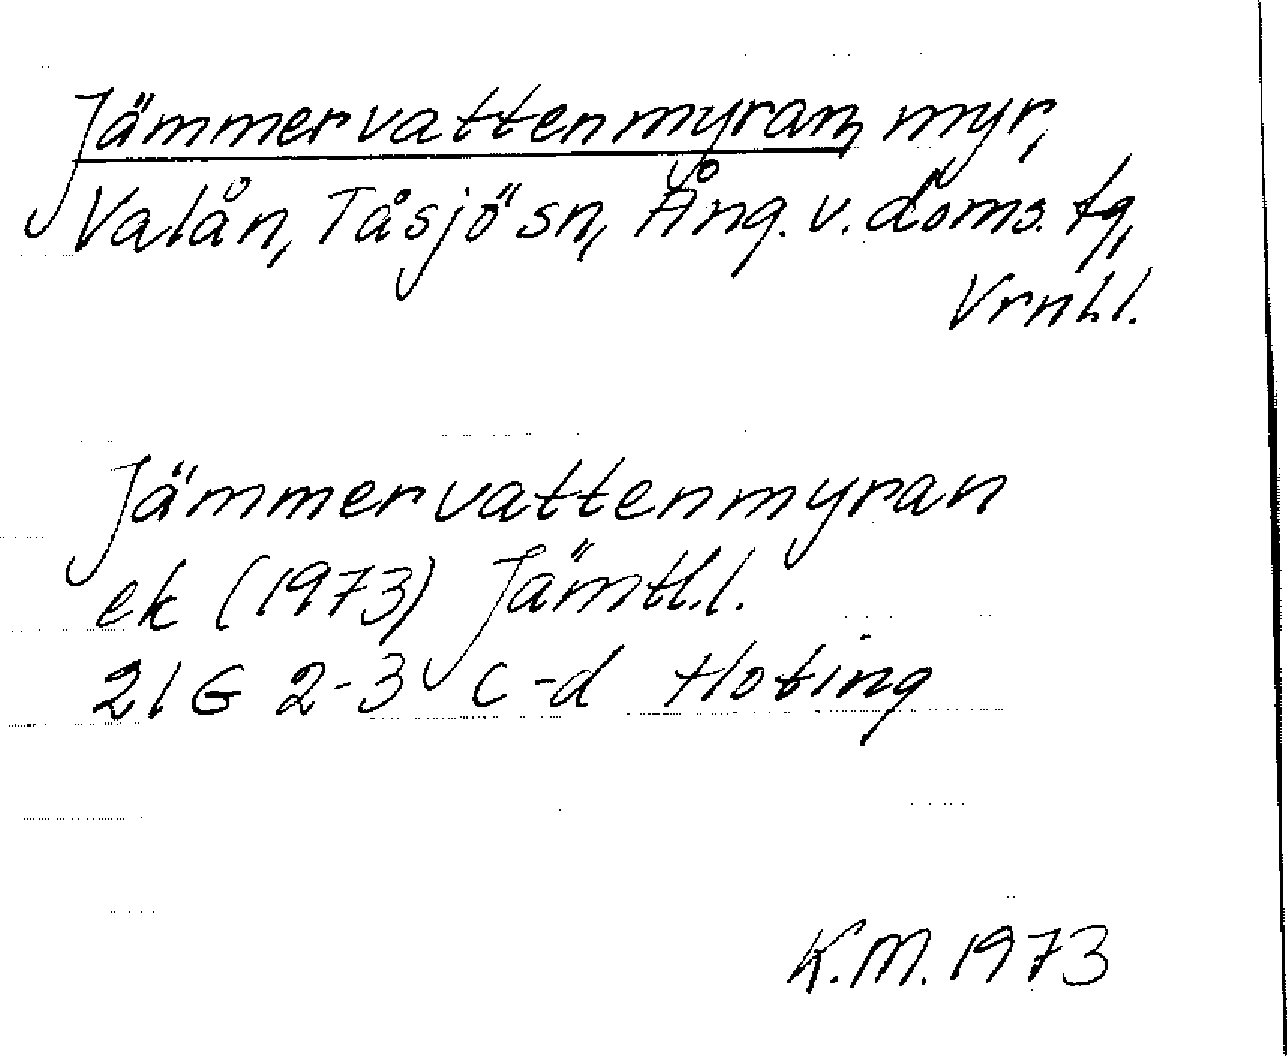 Jämmervattenmyran, myr,
Valån, Tåsjö sn, Ång. v. doms. tg,
Vrnl.l.
Jämmervattenmyran
ek (1973) Jämtl.l.
21 G 2-3 c-d Hoting
K.M. 1973